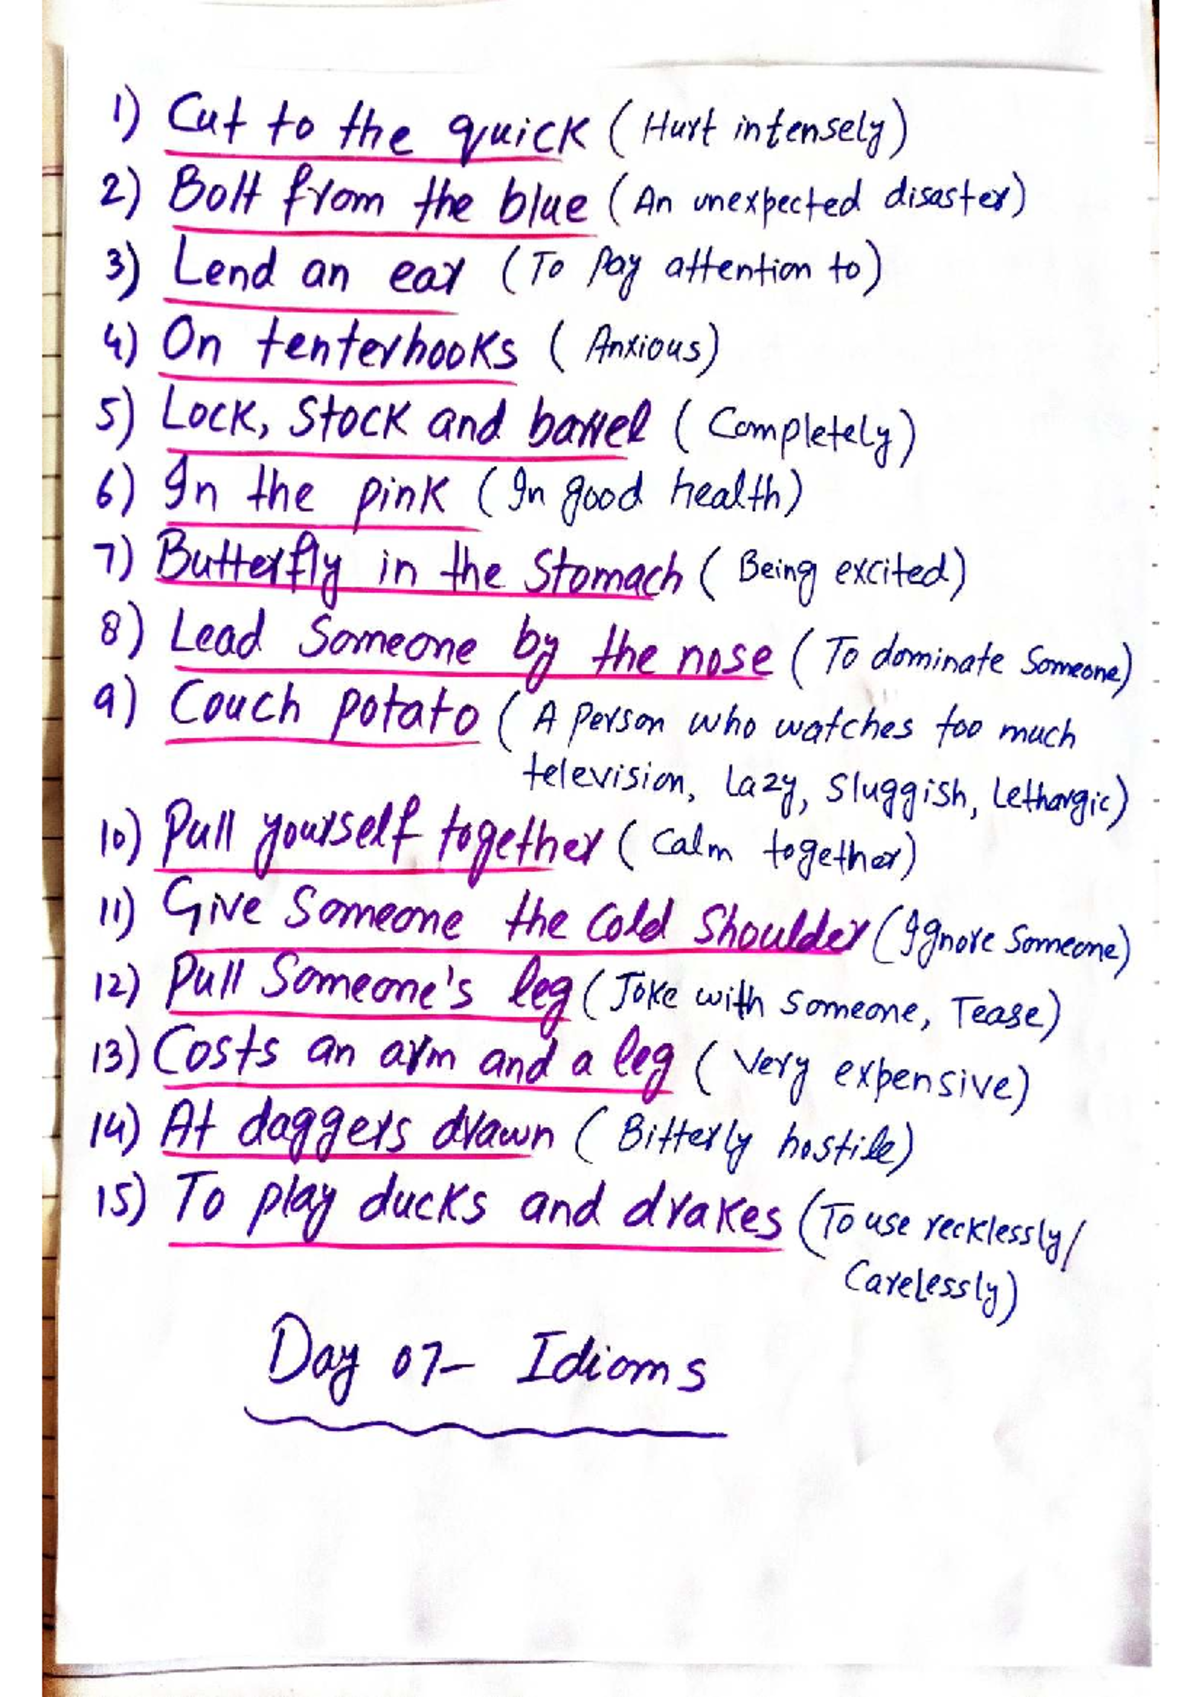 1) Cut to the quick (Hurt intensely)
2) Bolt from the blue (An unexpected disaster)
3) Lend an ear (To pay attention to)
4) On tenterhooks (Anxious)
5) Lock, Stock and barrel (Completely)
6) In the pink (In good health)
7) Butterfly in the Stomach (Being excited)
8) Lead Someone by the nose (To dominate Someone)
9) Couch potato (A person who watches too much
television, Lazy, Sluggish, Lethargic)
10) Pull yourself together (Calm together)
11) Give Someone the Cold Shoulder (Ignore Someone)
12) Pull Someone's leg (Joke with Someone, Tease)
13) Costs an arm and a leg (Very expensive)
14) At daggers drawn (Bitterly hostile)
15) To play ducks and drakes (To use recklessly/
Carelessly)
Day 07- Idioms